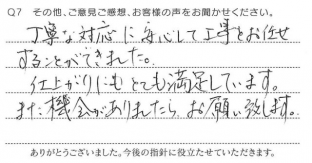 Q7 その他、ご意見ご感想、お客様の声をお聞かせください。
丁寧な対応に安心して工事をお任せ
することができました。
仕上がりにもとても満足しています。
また機会がありましたら、お願い致します。
ありがとうございました。今後の指針に役立たせていただきます。